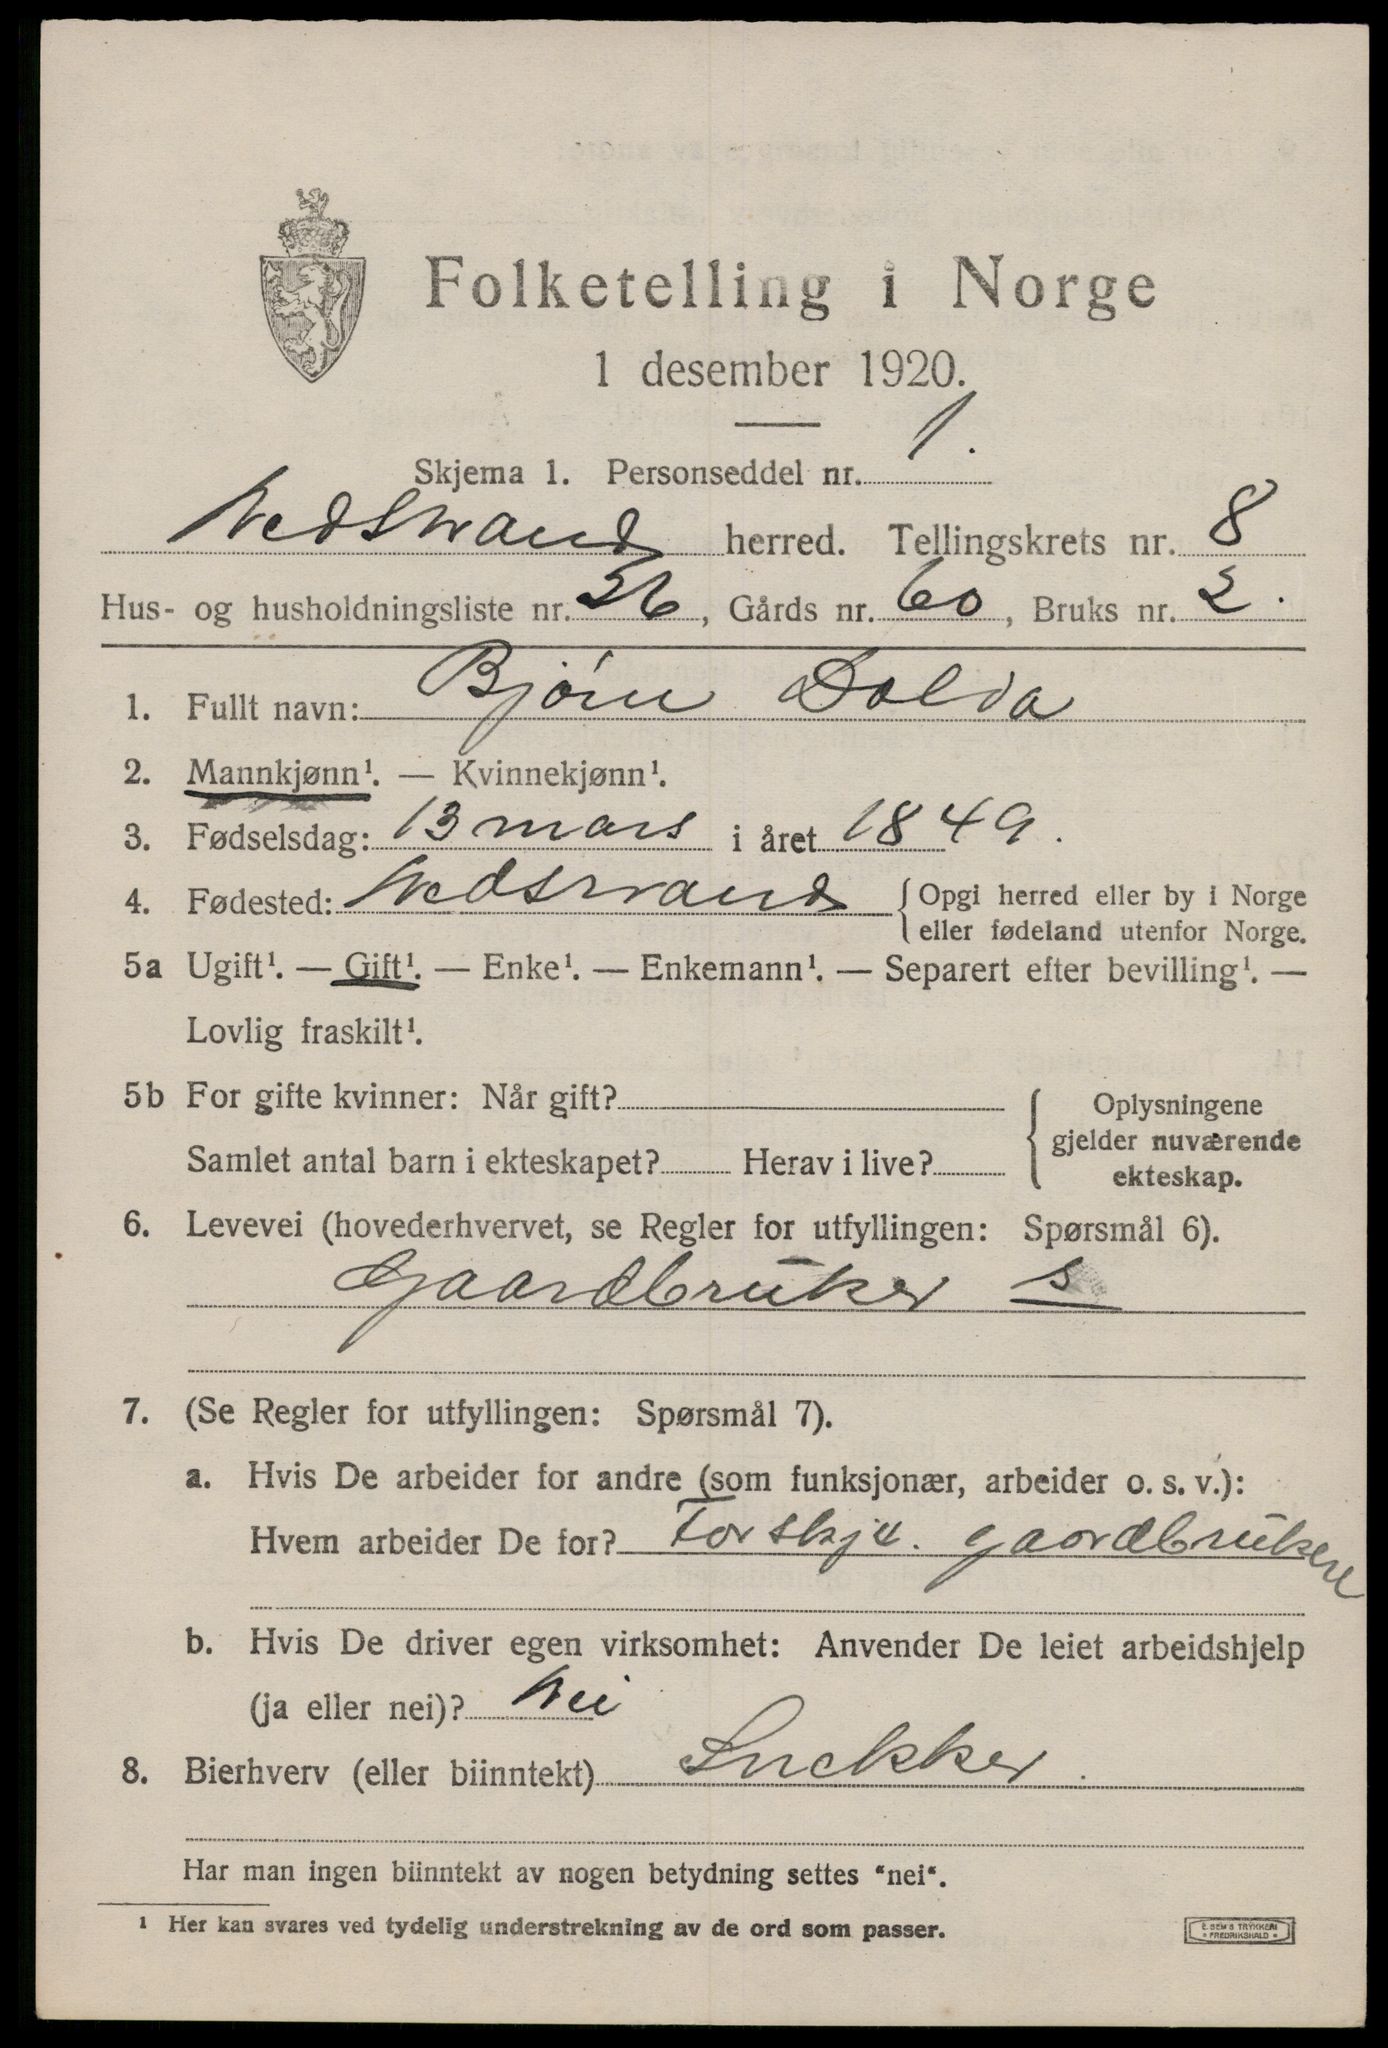 Folketelling i Norge
1 desember 1920.
Skjema 1. Personseddel nr. 1.
Nedstrand herred. Tellingskrets nr. 8
Hus- og husholdningsliste nr. 26, Gårds nr. 60, Bruks nr. 2.
1. Fullt navn: Bjørn Dolva
2. Mannkjønn¹. — Kvinnekjønn¹.
3. Fødselsdag: 13 mars i året 1849.
4. Fødested: Nedstrand { Opgi herred eller by i Norge
eller fødeland utenfor Norge.
5a Ugift¹. — Gift¹. — Enke¹. — Enkemann¹. — Separert efter bevilling¹. —
Lovlig fraskilt¹.
5b For gifte kvinner: Når gift? { Oplysningene
gjelder nuværende
Samlet antal barn i ekteskapet? Herav i live?
ekteskap.
6. Levevei (hovederhvervet, se Regler for utfyllingen: Spørsmål 6).
Gaardbruker s
7. (Se Regler for utfyllingen: Spørsmål 7).
a. Hvis De arbeider for andre (som funksjonær, arbeider o. s. v.):
Hvem arbeider De for? Forskj. gaardbrukere
b. Hvis De driver egen virksomhet: Anvender De leiet arbeidshjelp
(ja eller nei)? Nei
8. Bierhverv (eller biinntekt) Snekker.
Har man ingen biinntekt av nogen betydning settes "nei".
¹ Her kan svares ved tydelig understrekning av de ord som passer.
E. SEM'S TRYKKERI
FREDRIKSHALD